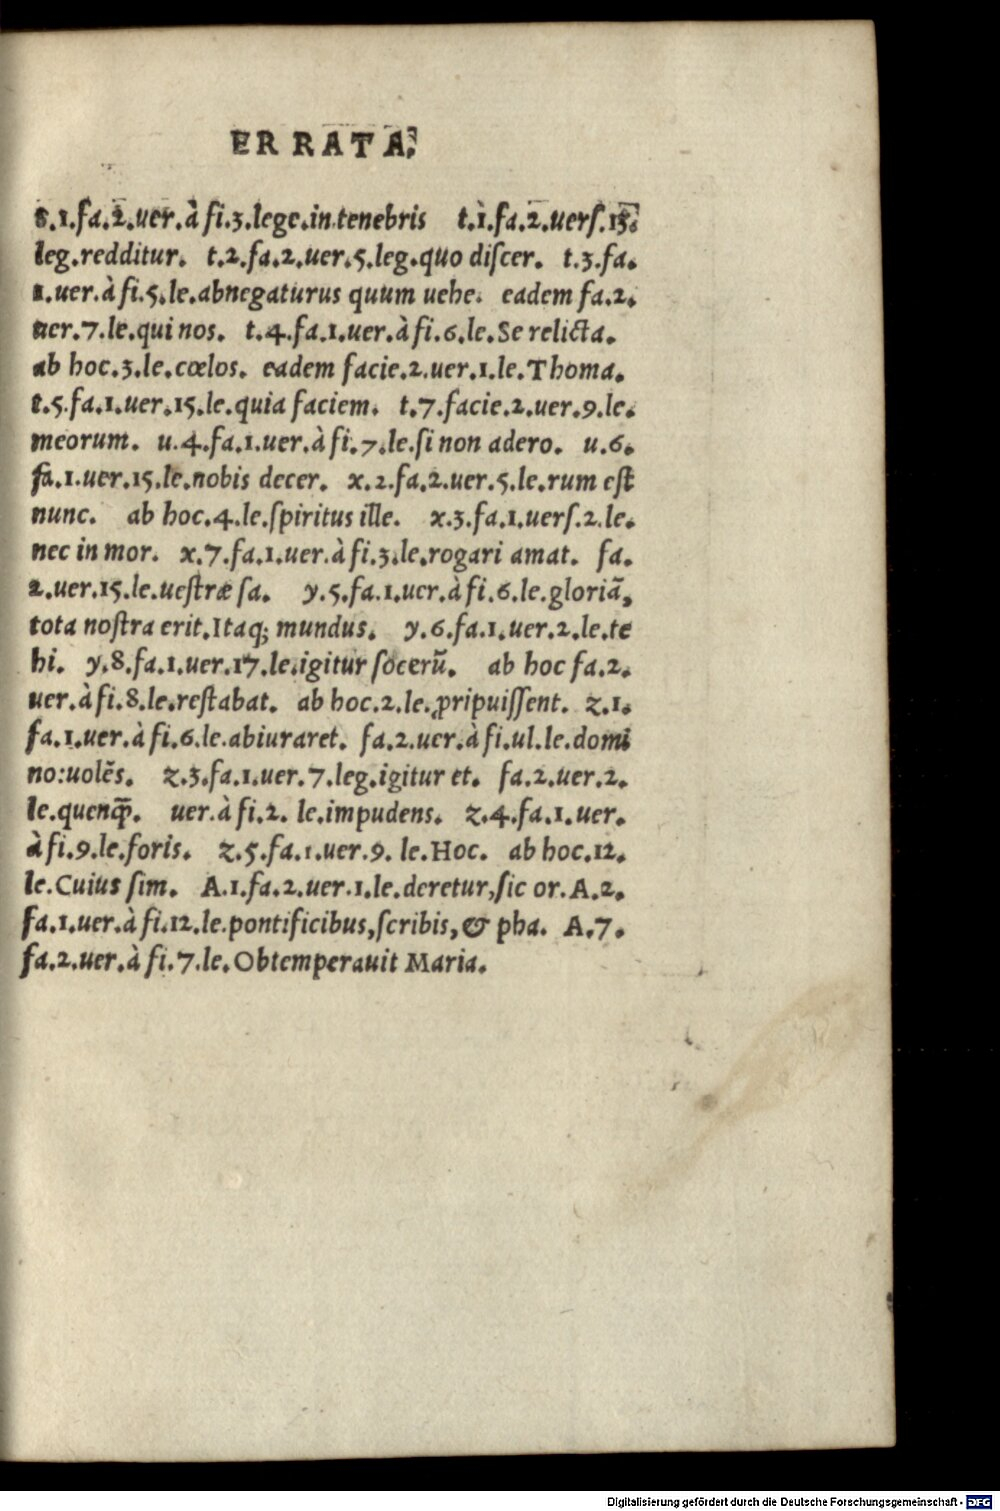 ERRATA.
s.1.fa.2.uer.à fi.3.lege.in tenebris t.1.fa.2.uerſ.13.
leg.redditur. t.2.fa.2.uer.5.leg.quo diſcer. t.3.fa.
1.uer.à fi.5.le.abnegaturus quum uehe. eadem fa.2.
uer.7.le.qui nos. t.4.fa.1.uer.à fi.6.le.Se relicta.
ab hoc.3.le.cœlos. eadem facie.2.uer.1.le.Thoma.
t.5.fa.1.uer.15.le.quia faciem. t.7.facie.2.uer.9.le.
meorum. u.4.fa.1.uer.à fi.7.le.ſi non adero. u.6.
fa.1.uer.15.le.nobis decer. x.2.fa.2.uer.5.le.rum eſt
nunc. ab hoc.4.le.ſpiritus ille. x.3.fa.1.uerſ.2.le.
nec in mor. x.7.fa.1.uer.à fi.3.le.rogari amat. fa.
2.uer.15.le.ueſtræ ſa. y.5.fa.1.uer.à fi.6.le.gloriã,
tota noſtra erit.Itaq; mundus. y.6.fa.1.uer.2.le.te
hi. y.8.fa.1.uer.17.le.igitur ſocerũ. ab hoc fa.2.
uer.à fi.8.le.reſtabat. ab hoc.2.le.ꝓripuiſſent. z.1.
fa.1.uer.à fi.6.le.abiuraret. fa.2.uer.à fi.ul.le.domi
no:uolẽs. z.3.fa.1.uer.7.leg.igitur et. fa.2.uer.2.
le.quenq̃. uer.à fi.2. le.impudens. z.4.fa.1.uer.
à fi.9.le.foris. z.5.fa.1.uer.9. le.Hoc. ab hoc.12.
le.Cuius ſim. A.1.fa.2.uer.1.le.deretur,ſic or. A.2.
fa.1.uer.à fi.12.le.pontificibus,ſcribis,& pha. A.7.
fa.2.uer.à fi.7.le.Obtemperauit Maria.
Digitalisierung gefördert durch die Deutsche Forschungsgemeinschaft - DFG